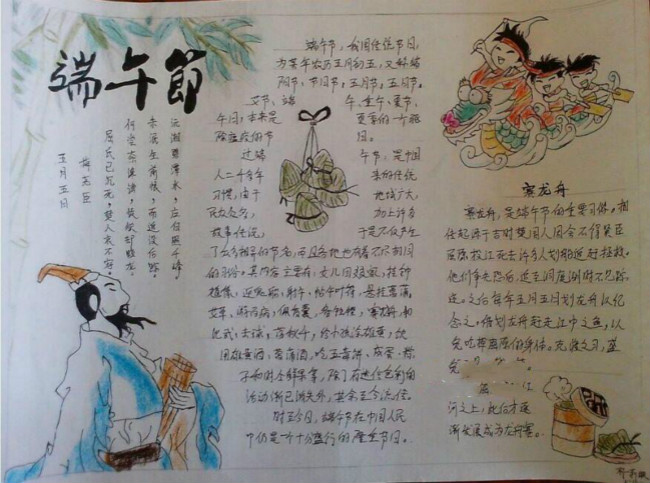 端午節
五月五日
梅尧臣
屈氏已沉死，楚人衰不容。
何尝奈谗谤，徒欲却蛟龙。
未泯生前恨，而追没后踪。
沅湘碧潭水，应自照千峰。
端午节，我国传统节日，
为每年农历五月初五，又称端
阳节、午日节，五月节，五日节，
艾节、端午、重午、夏节，
午日，本来是夏季的一个驱
除瘟疫的节日。
过端午节，是中国
人二千多年来的传统
习惯，由于地域广大，
民族众多，加上许多
故事传说，于是不仅产生
了众多相异的节名，而且各地也有着不尽相同
的习俗。其内容主要有：女儿回娘家，挂钟
馗像，迎鬼船、躲午，帖午叶符，悬挂菖蒲、
艾草，游百病，佩香囊，备牲醴，赛龙舟，比
武，击球，荡秋千，给小孩涂雄黄，饮
用雄黄酒、菖蒲酒，吃五毒饼、咸蛋、粽
子和时令鲜果等，除了有迷信色彩的
活动渐已消失外，其余至今流传
时至今日，端午节在中国人民
中仍是一个十分盛行的隆重节日。
赛龙舟
赛龙舟，是端午节的主要习俗。相
传起源于古时楚国人因舍不得贤臣
屈原投江死去许多人划船追赶拯救。
他们争先恐后，追至洞庭湖时不见踪
迹。之后每年五月五日划龙舟以纪
念之。借划龙舟赶走江中之鱼，以
免吃掉屈原的身体。
河之上，此后才逐
渐发展成为龙舟赛。